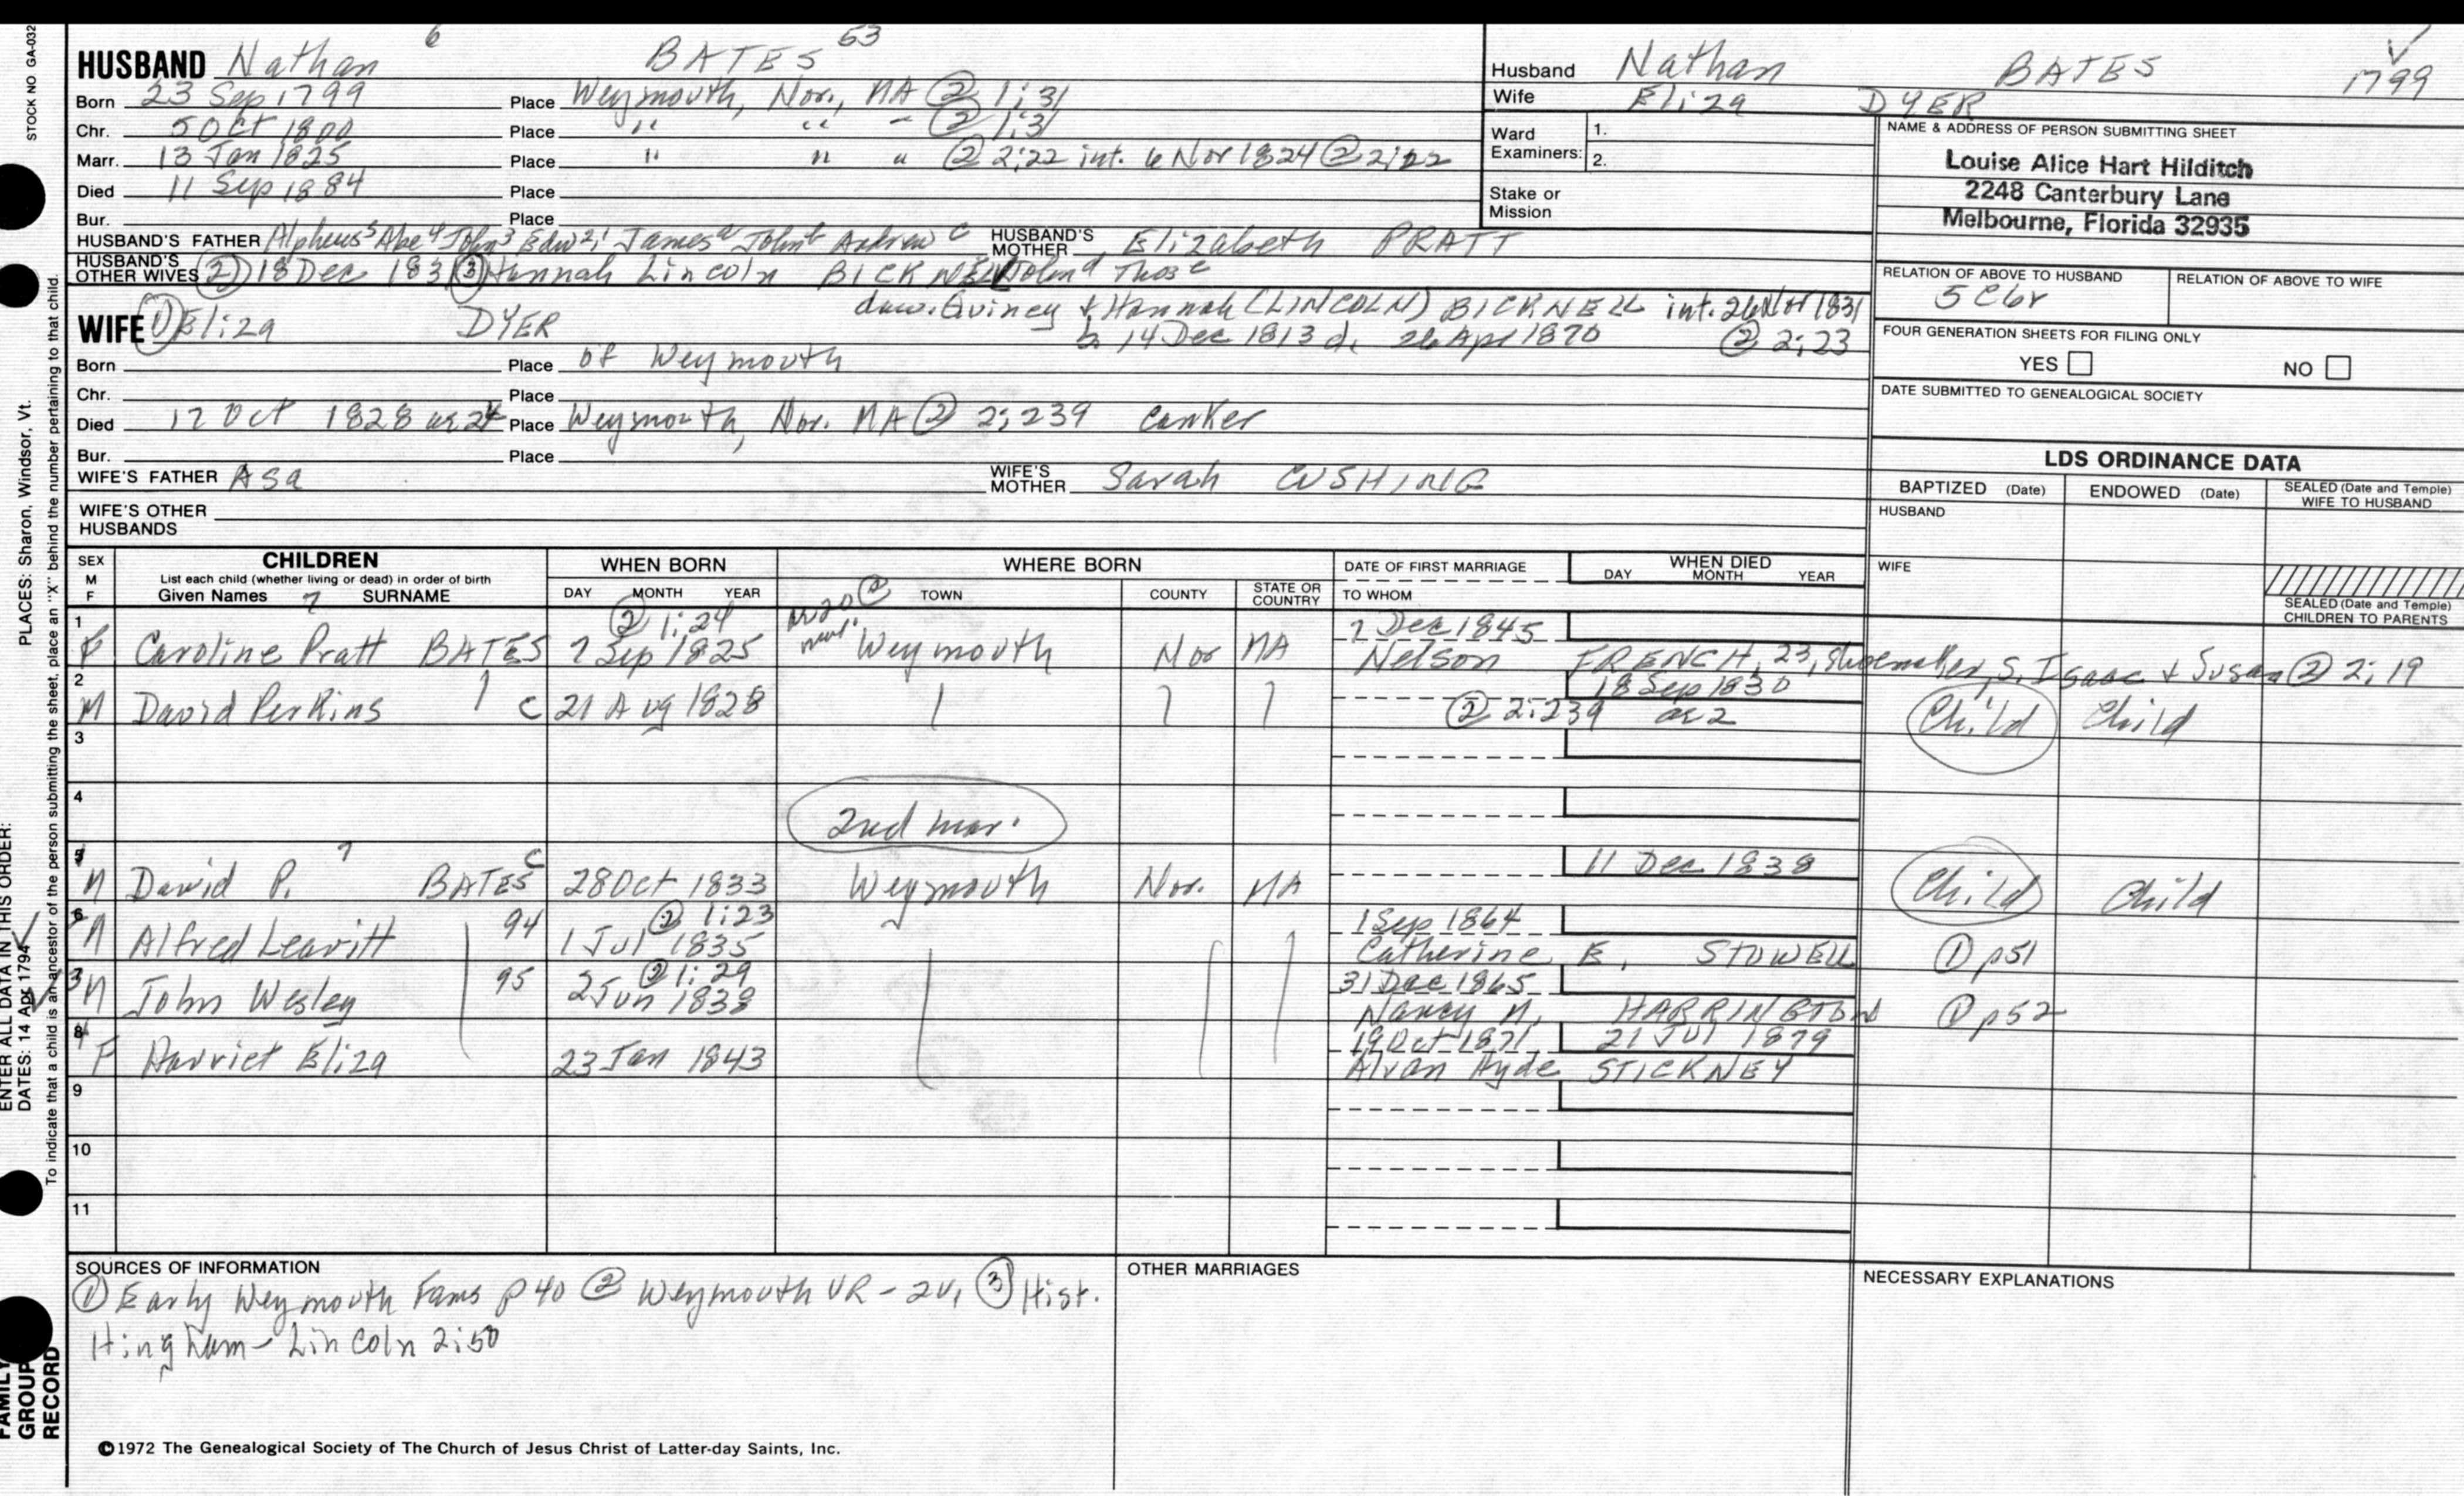 STOCK NO GA-032
HUSBAND Nathan 6 BATES 53
Born 23 Sep 1799 Place Weymouth, Nor., MA ② 1:31
Chr. 5 Oct 1800 Place " " " ② 1:31
Marr. 13 Jan 1825 Place " " " ② 2:22 int. 6 Nov 1824 ② 2:22
Died 11 Sep 1884 Place
Bur. Place
HUSBAND'S FATHER Alpheus⁵ Abe⁴ John³ Edw²,¹ James John Andrew HUSBAND'S MOTHER Elizabeth PRATT
HUSBAND'S OTHER WIVES ② 18 Dec 1831 ③ Hannah Lincoln BICKNELL
dau. Quincy & Hannah (LINCOLN) BICKNELL int. 26 Nov 1831
b 14 Dec 1813 d. 26 Apr 1870 ② 2:23
WIFE ① Eliza DYER
Born Place of Weymouth
Chr. Place
Died 17 Oct 1828 ae 24 Place Weymouth, Nor. MA ② 2:239 canker
Bur. Place
WIFE'S FATHER Asa WIFE'S MOTHER Sarah CUSHING
WIFE'S OTHER HUSBANDS
Husband Nathan BATES 1799
Wife Eliza DYER
Ward Examiners: 1.
2.
Stake or Mission
NAME & ADDRESS OF PERSON SUBMITTING SHEET
Louise Alice Hart Hilditch
2248 Canterbury Lane
Melbourne, Florida 32935
RELATION OF ABOVE TO HUSBAND RELATION OF ABOVE TO WIFE
5 C6r
FOUR GENERATION SHEETS FOR FILING ONLY
YES NO
DATE SUBMITTED TO GENEALOGICAL SOCIETY
LDS ORDINANCE DATA
BAPTIZED (Date) ENDOWED (Date) SEALED (Date and Temple) WIFE TO HUSBAND
HUSBAND
WIFE
SEALED (Date and Temple) CHILDREN TO PARENTS
SEX M F CHILDREN WHEN BORN WHERE BORN DATE OF FIRST MARRIAGE WHEN DIED
List each child (whether living or dead) in order of birth DAY MONTH YEAR
Given Names 7 SURNAME DAY MONTH YEAR TOWN COUNTY STATE OR COUNTRY TO WHOM
1 ② 1:24 ae 20 ② 7 Dec 1845
F Caroline Pratt BATES 7 Sep 1825 Weymouth Nor MA Nelson FRENCH, 23, shoemaker, s. Isaac & Susan ② 2:19
2 18 Sep 1830
M David Perkins C 21 Aug 1828 ② 2:239 ae 2 Child Child
3
4 2nd mar.
5 7 11 Dec 1838
M David P. BATES C 28 Oct 1833 Weymouth Nor. MA Child Child
6 94 ② 1:23 1 Sep 1864
M Alfred Leavitt 1 Jul 1835 Catherine E. STOWELL ① p51
3 95 ② 1:29 31 Dec 1865
M John Wesley 2 Jun 1838 Nancy M. HARRINGTON ① p52
8 19 Oct 1871 21 Jul 1879
F Harriet Eliza 23 Jan 1843 Alvan Hyde STICKNEY
9
10
11
SOURCES OF INFORMATION OTHER MARRIAGES NECESSARY EXPLANATIONS
① Early Weymouth Fams p 40 ② Weymouth VR - 2v, ③ Hist.
Hingham - Lincoln 2:50
©1972 The Genealogical Society of The Church of Jesus Christ of Latter-day Saints, Inc.
ENTER ALL DATA IN THIS ORDER:
DATES: 14 Apr 1794 PLACES: Sharon, Windsor, Vt.
To indicate that a child is an ancestor of the person submitting the sheet, place an "X" behind the number pertaining to that child.
FAMILY
GROUP
RECORD